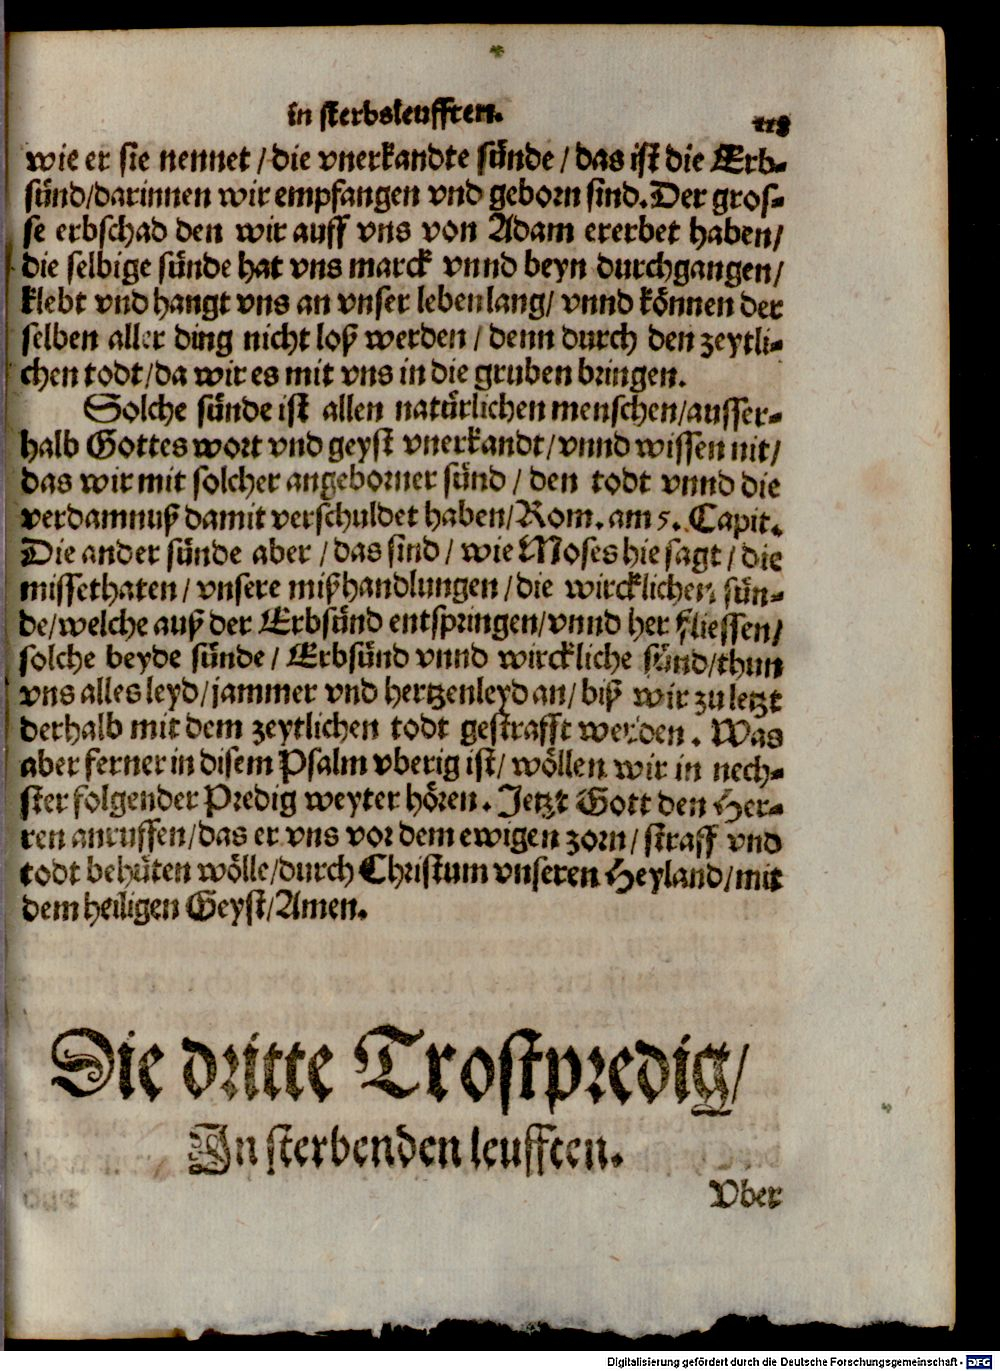 in sterbsleufften.
118
wie er sie nennet / die vnerkandte sünde / das ist die Erb-
sünd/darinnen wir empfangen vnd geborn sind. Der gros-
se erbschad den wir auff vns von Adam ererbet haben/
die selbige sünde hat vns marck vnnd beyn durchgangen/
klebt vnd hangt vns an vnser lebenlang/ vnnd können der
selben aller ding nicht loß werden / denn durch den zeytli-
chen todt/da wir es mit vns in die gruben bringen.
Solche sünde ist allen natürlichen menschen/ausser-
halb Gottes wort vnd geyst vnerkandt/vnnd wissen nit/
das wir mit solcher angeborner sünd / den todt vnnd die
verdamnuß damit verschuldet haben/Rom. am 5. Capit.
Die ander sünde aber / das sind / wie Moses hie sagt / die
missethaten / vnsere mißhandlungen / die wircklichen sün-
de/welche auß der Erbsünd entspringen/vnnd her fliessen/
solche beyde sünde / Erbsünd vnnd wirckliche sünd/thun
vns alles leyd/jammer vnd hertzenleyd an/ biß wir zu letzt
derhalb mit dem zeytlichen todt gestrafft werden. Was
aber ferner in disem Psalm vberig ist/ wöllen wir in nech-
ster folgender Predig weyter hören. Jetzt Gott den Her-
ren anruffen/das er vns vor dem ewigen zorn/ straff vnd
todt behüten wölle/durch Christum vnseren Heyland/mit
dem heiligen Geyst/Amen.
Die dritte Trostpredig/
In sterbenden leufften.
Vber
Digitalisierung gefördert durch die Deutsche Forschungsgemeinschaft - DFG